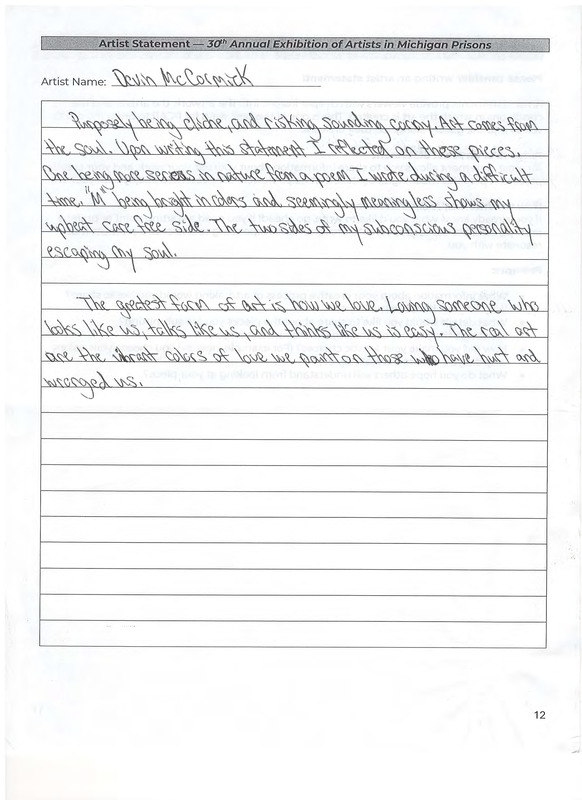 Artist Statement — 30th Annual Exhibition of Artists in Michigan Prisons
Artist Name: Devin McCormick
Purposely being cliche, and risking sounding corny. Art comes from
the soul. Upon writing this statement I reflected on these pieces.
One being more serious in nature from a poem I wrote during a difficult
time. "M" being bright in colors and seemingly meaningless shows my
upbeat care free side. The two sides of my subconscious personality
escaping my soul.
The greatest form of art is how we love. Loving someone who
looks like us, talks like us, and thinks like us is easy. The real art
are the vibrant colors of love we paint on those who have hurt and
wronged us.
12